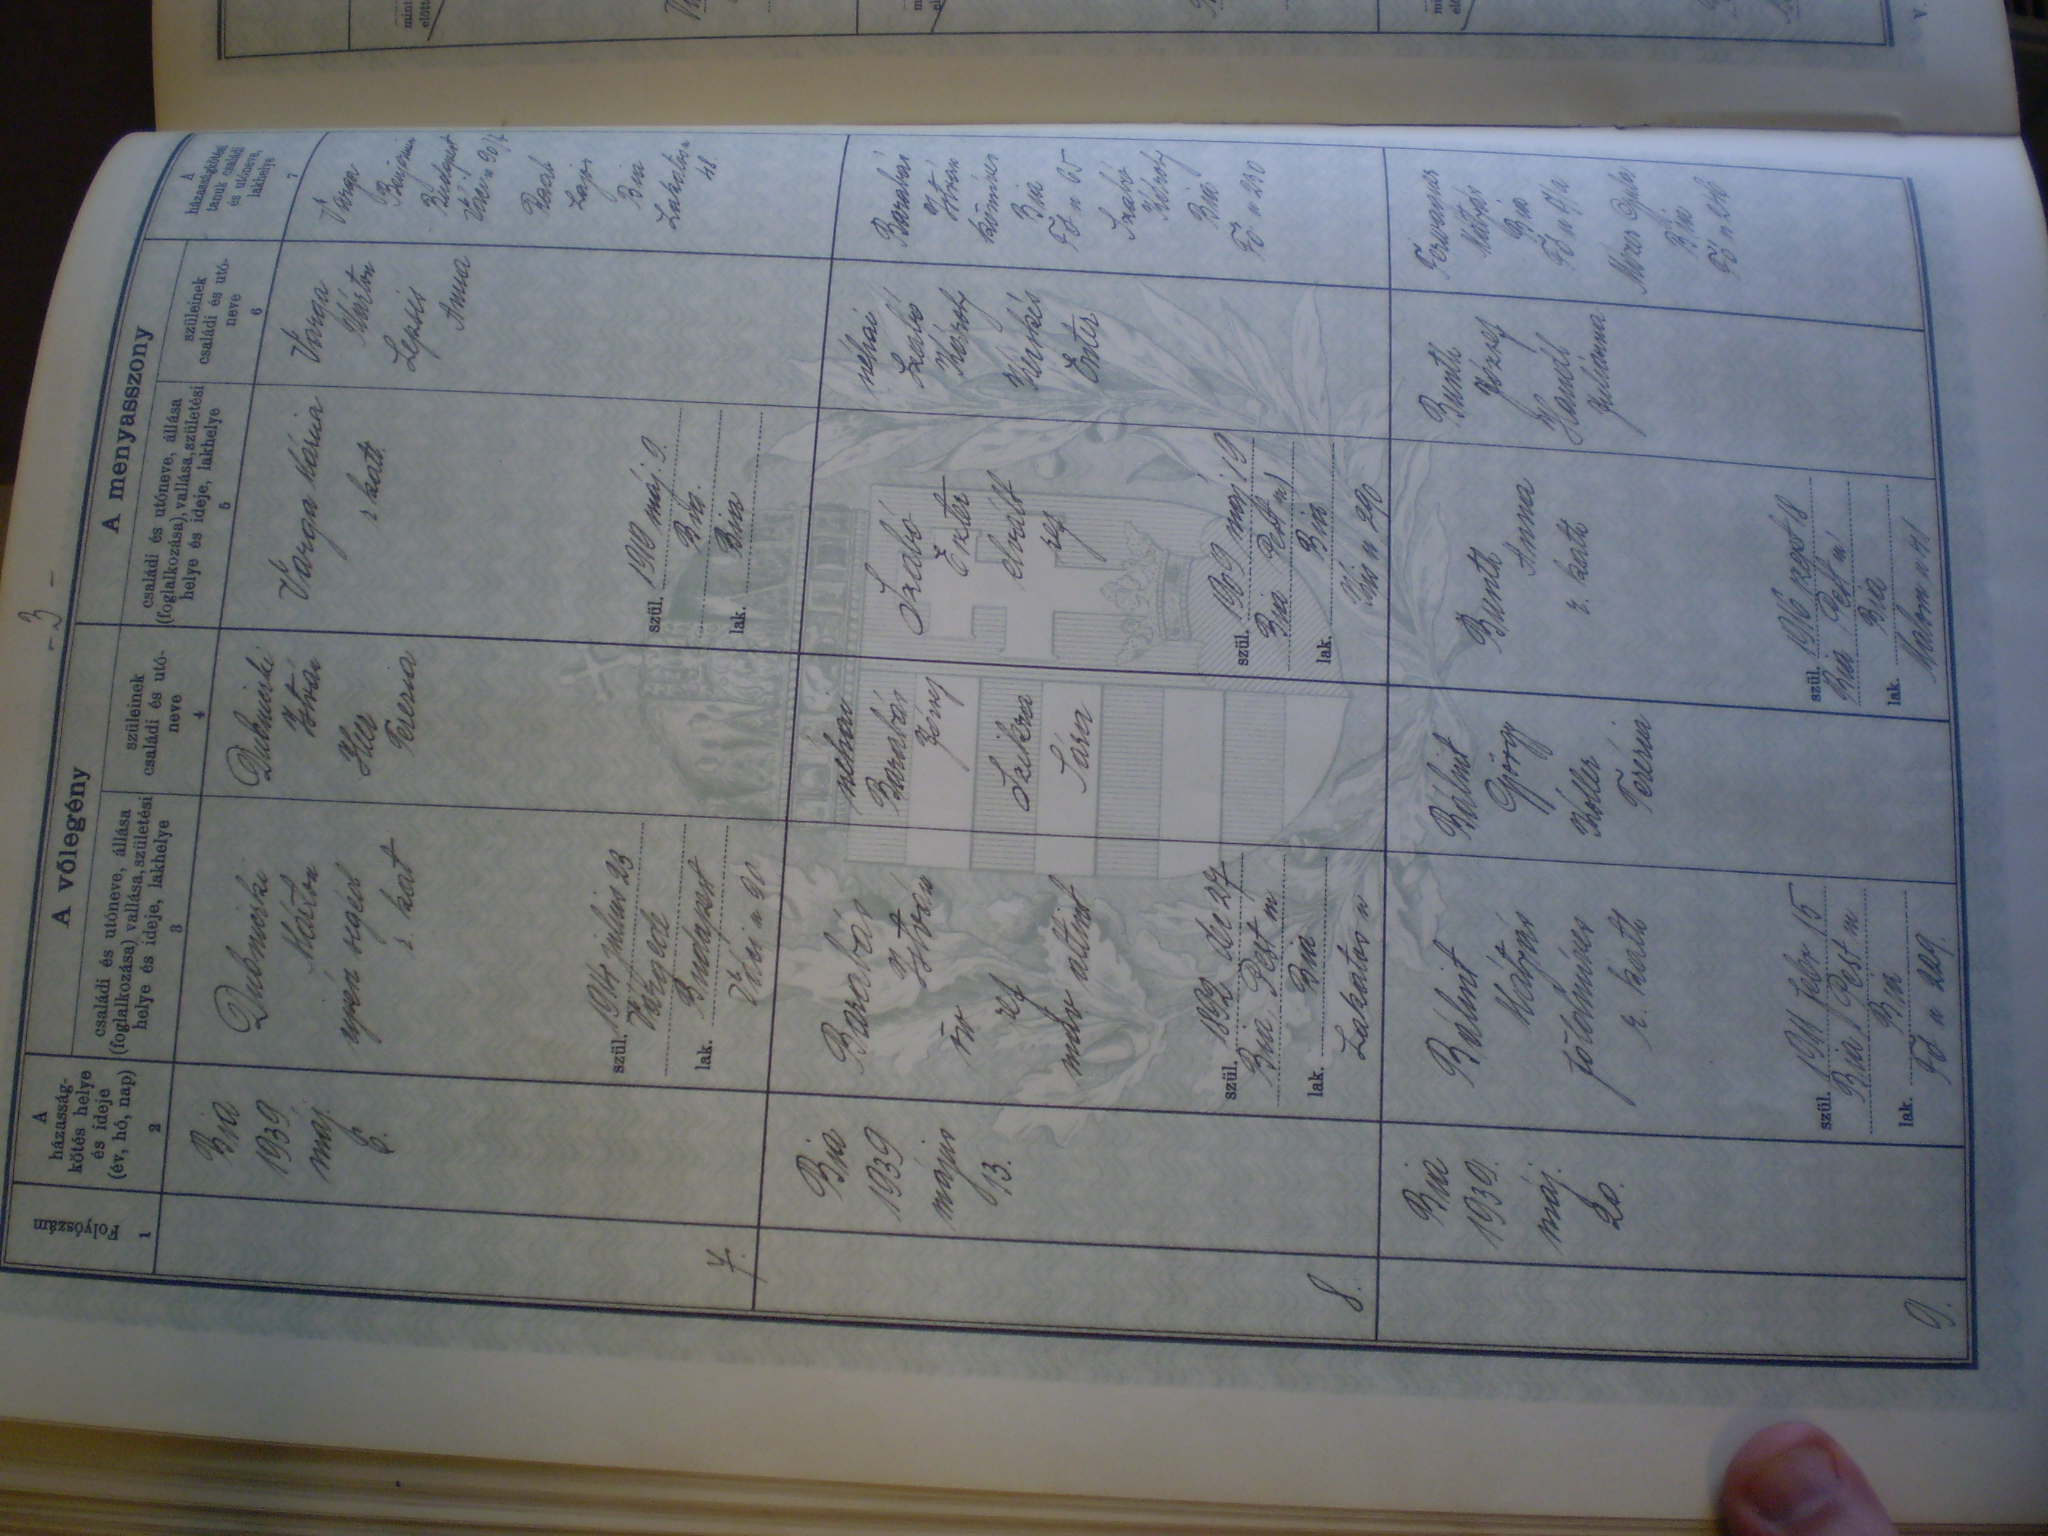 - 3 -
Folyószám
1
A
házasság-
kötés helye
és ideje
(év, hó, nap)
2
A vőlegény
családi és utóneve, állása
(foglalkozása) vallása, születési
helye és ideje, lakhelye
3
szüleinek
családi és utó-
neve
4
A menyasszony
családi és utóneve, állása
(foglalkozása), vallása, születési
helye és ideje, lakhelye
5
szüleinek
családi és utó-
neve
6
A
házasságkötési
tanuk családi
és utóneve,
lakhelye
7
7.
Bia
1939
máj.
6.
Dubniczki
Márton
segéd
r. kat
szül. 1914 julius 23
lak. Budapest
Váci u 90
Dubniczki
István
Teréria
Varga Mária
r kath.
szül. 1919 máj. 9.
Bia.
lak. Bia
Varga
Márton
Lepsis
Anna
Varga
Budapest
Váci u 90/
Raab
Lajos
Bia
Lakatos u
48.
8.
Bia
1939
május
13.
Barabás
István
ref
máv altiszt
szül. 1892 dec 27
Bia, Pest m
lak. Bia
Lakatos u
néhai
Barabás
Szikra
Sára
Szabó
Eszter
elvált
ref
szül. 1909 máj 9
Bia Pest m
lak Bia
u 290
néhai
Szabó
Károly
Kerkés
Eszter
Barabás
István
kőműves
Bia
Fő u 65
Szabó
Károly
Bia
Fő u 290
9.
Bia
1939.
máj.
20.
Bálint
Mátyás
földműves
r. kath
szül. 1911 febr 15
Bia Pest m
lak. Bia
Fő u 229.
Bálint
György
Koller
Terézia
Bunth
Anna
r. kath
szül. 1916 szept 18
Bia Pest m
lak. Bia
Malom u 41
Bunth
József
Julianna
Mátyás
Bia
Fő u
Gyula
Bia
Fő u 216
V.